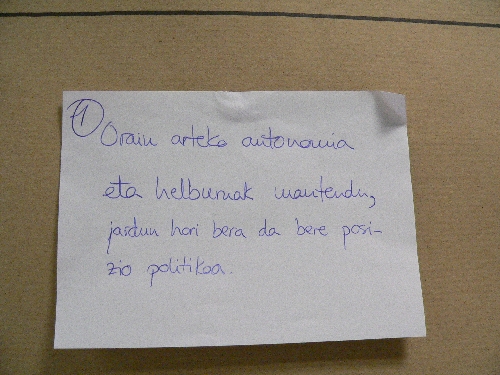 1
Orain arteko autonomia
eta helburuak mantendu,
jardun hori bera da bere posi-
zio politikoa.